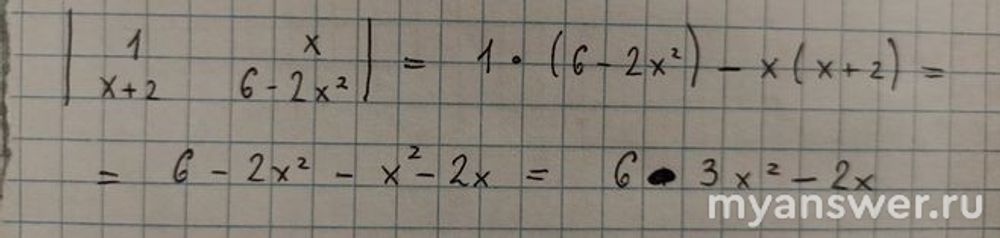 | 1 x | = 1 · (6 - 2x²) - x (x+2) =
| x+2 6-2x² |
= 6 - 2x² - x² - 2x = 6 - 3x² - 2x
myanswer.ru